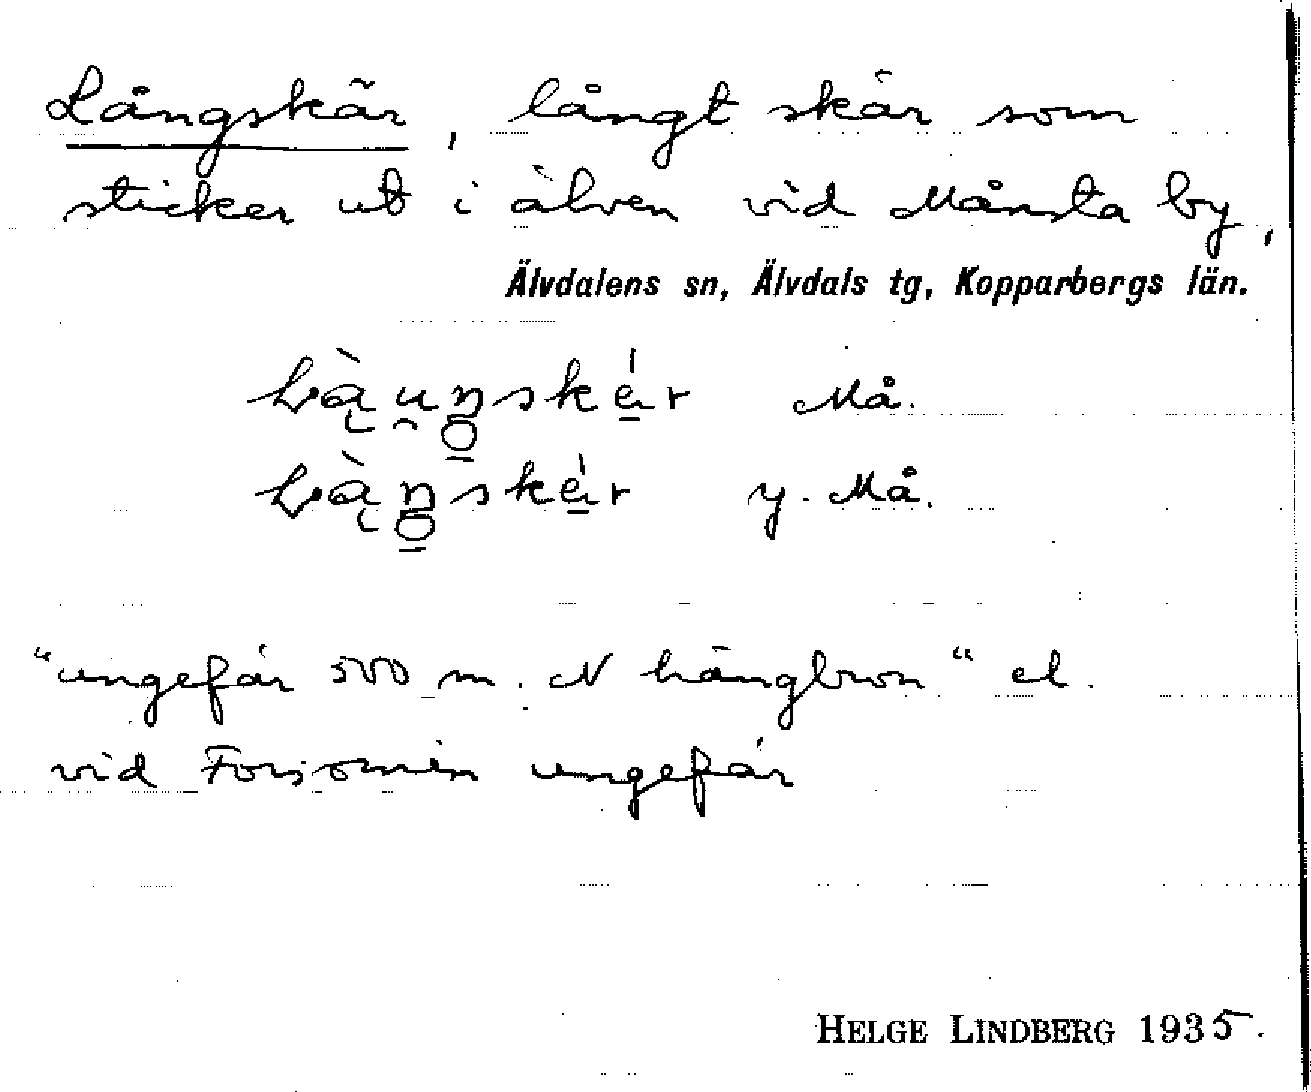 Långskär, långt skär som
sticker ut i älven vid Månsta by,
Älvdalens sn, Älvdals tg, Kopparbergs län.
Må.
y. Må.
"ungefär 500 m. N hängbron" el.
vid ungefär
HELGE LINDBERG 1935.